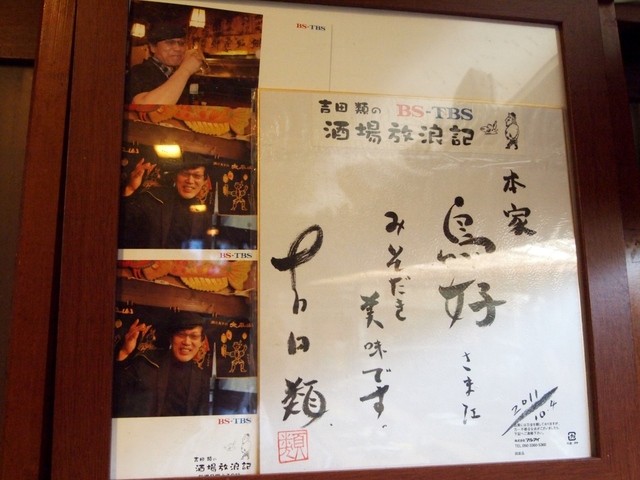 BS-TBS
BS-TBS
BS-TBS
吉田類の
酒場放浪記
吉田類の BS-TBS
酒場放浪記
本家
鳥好
さま江
みそだき
美味です。
吉田類
類
2011
10.4